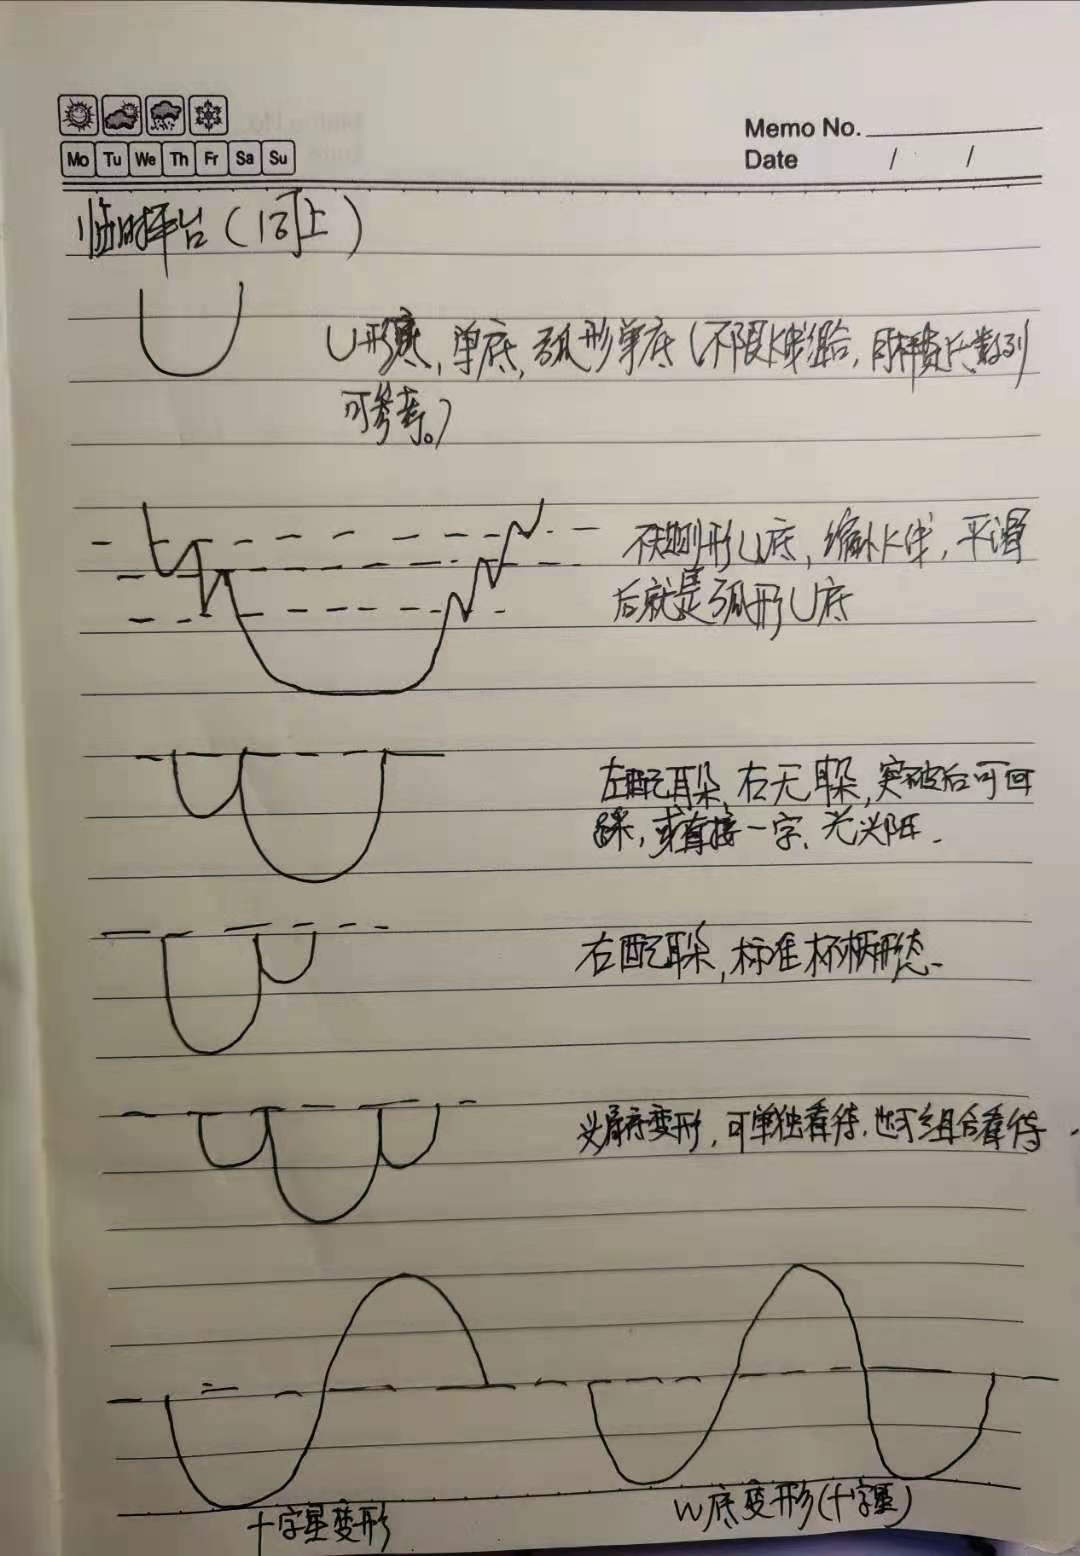 Mo Tu We Th Fr Sa Su
Memo No.
Date / /
临时平台（向上）
U形底，单底，弧形单底（不限K线组合，
可参考。）
不规则形U底，缩小K线，平滑
后就是弧形U底
左配耳朵，右无耳朵，突破后可回
踩，或直接一字、光头阳.
右配耳朵，标准杯柄形态.
头肩底变形，可单独看待，也可组合看待.
十字星变形
W底变形(十字星)